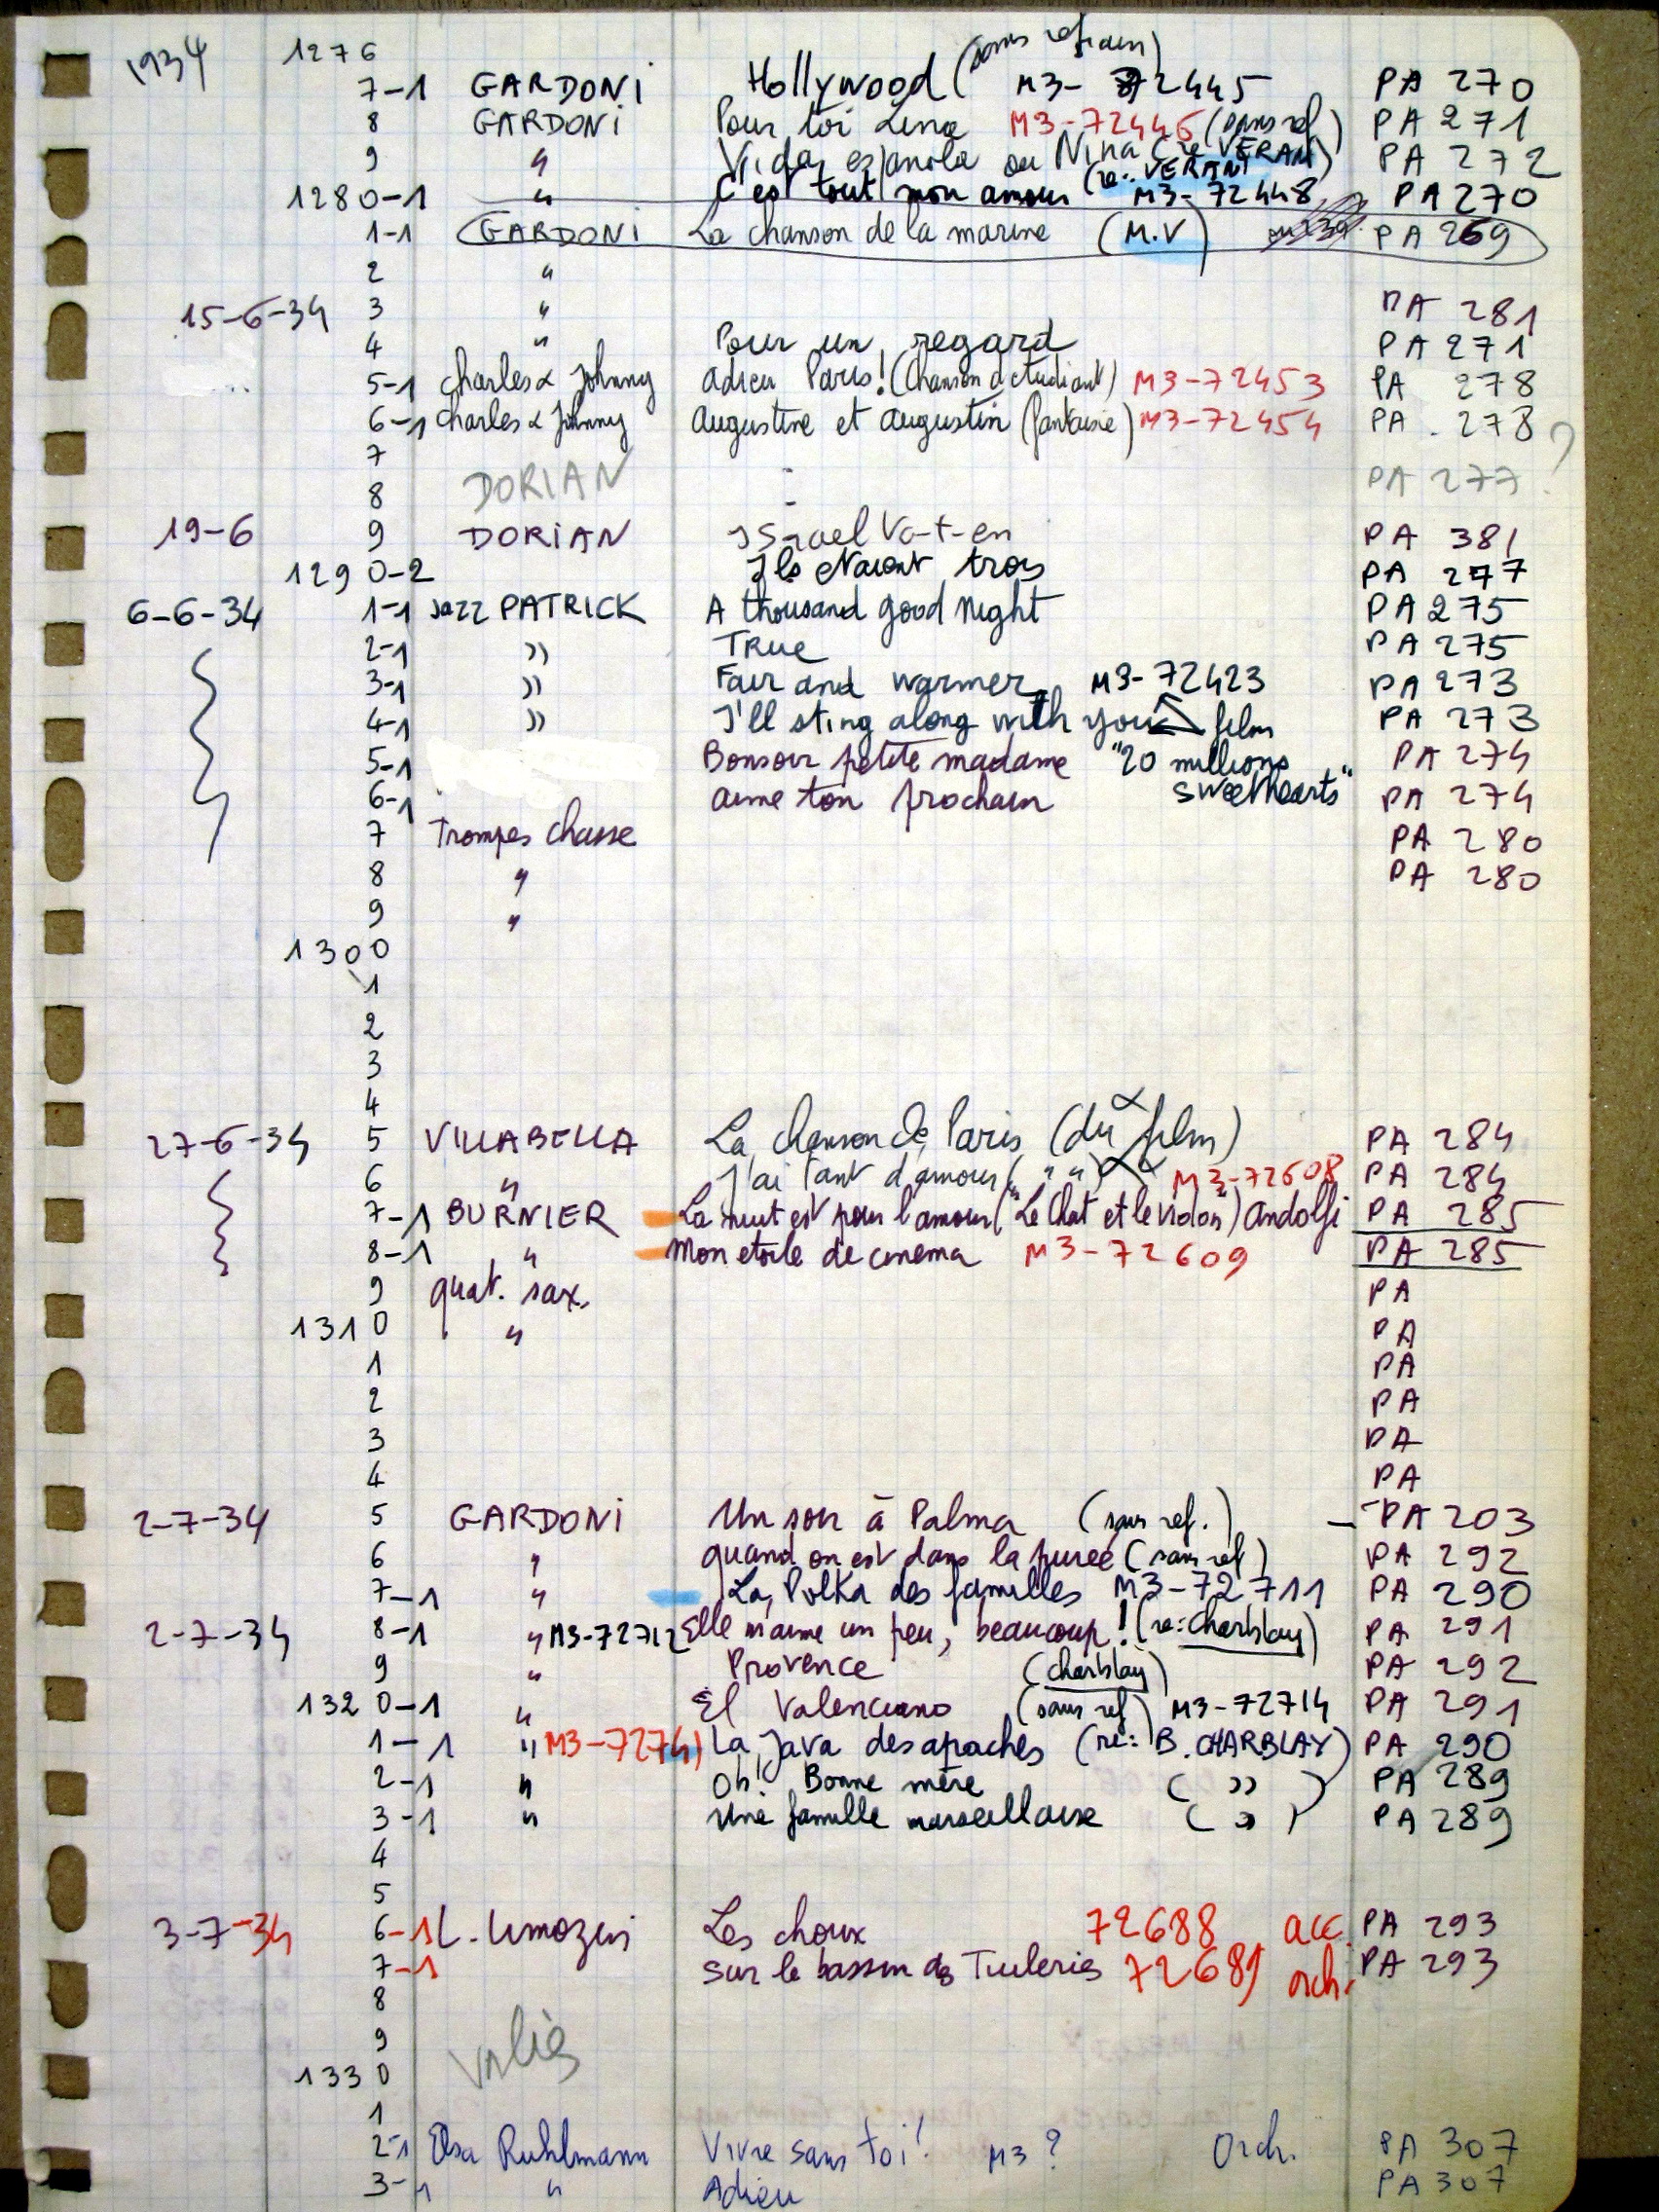 1934 1276 (sans refrain)
7-1 GARDONI Hollywood M3- 72445 PA 270
8 GARDONI Pour toi Lina M3-72446 (sans ref) PA 271
9 " Vida espanola ou Nina (re VERAN) PA 272
1280-1 " C'est tout mon amour (re: VERAN) M3-72448 PA 270
1-1 GARDONI La chanson de la marine (M.V) PA 269
2 "
15-6-34 3 " PA 281
4 " Pour un regard PA 271
5-1 Charles & Johnny adieu Paris! (Chanson d'etudiant) M3-72453 PA 278
6-1 Charles & Johnny Augustine et Augustin (fantaisie) M3-72454 PA 278 ?
7
8 DORIAN PA 277 ?
19-6 9 DORIAN Israel Va-t-en PA 381
1290-2 Ils etaient trois PA 277
6-6-34 1-1 Jazz PATRICK A thousand good night PA 275
2-1 " TRUE PA 275
3-1 " Fair and warmer M3-72423 PA 273
4-1 " I'll sting along with you film PA 273
5-1 Bonsoir petite madame "20 millions PA 274
6-1 aime ton prochain sweethearts" PA 274
7 Trompes chasse PA 280
8 " PA 280
9 "
1300
1
2
3
4
27-6-34 5 VILLABELLA La chanson de Paris (du film) PA 284
6 " J'ai tant d'amour ( " " ) M3-72608 PA 284
7-1 BURNIER La nuit est pour l'amour ("Le Chat et le violon") Andolfi PA 285
8-1 " Mon etoile de cinema M3-72609 PA 285
9 quat. sax. PA
1310 " PA
1 PA
2 PA
3 PA
4 PA
2-7-34 5 GARDONI Un soir à Palma (sans ref.) - PA 203
6 " quand on est dans la purée (sans ref) PA 292
7-1 " La Polka des familles M3-72711 PA 290
2-7-34 8-1 " M3-72712 Elle m'aime un peu, beaucoup! (re: Charblay) PA 291
9 " Provence (charblay) PA 292
1320-1 " El Valenciano (sans ref) M3-72714 PA 291
1-1 " M3-7274) La Java des apaches (re: B. CHARBLAY) PA 290
2-1 " Oh! Bonne mère ( " ) PA 289
3-1 " Une famille marseillaise ( " ) PA 289
4
5
3-7-34 6-1 L. Limozin Les choux 72688 acc. PA 293
7-1 Sur le bassin des Tuileries 72689 orch. PA 293
8
9 Valiès
1330
1
2-1 Elsa Ruhlmann Vivre sans toi! M3 ? Orch. PA 307
3-1 " Adieu PA 307